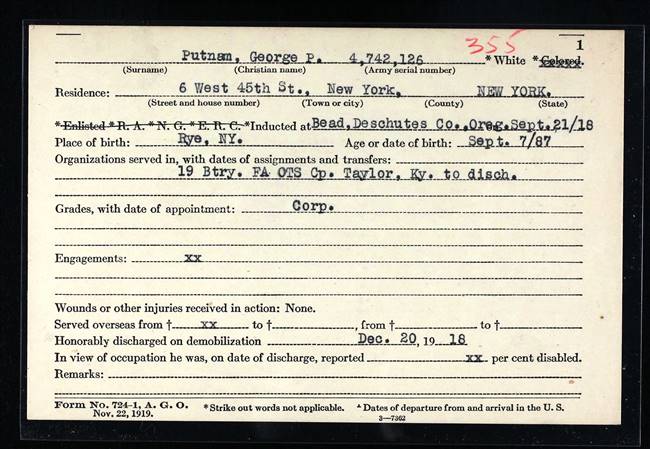 355
1
Putnam, George P. 4,742,126 * White * Colored.
(Surname) (Christian name) (Army serial number)
Residence: 6 West 45th St., New York, NEW YORK.
(Street and house number) (Town or city) (County) (State)
* Enlisted * R. A. * N. G. * E. R. C. * Inducted at Bead,Deschutes Co.,Oreg.Sept.21/18
Place of birth: Rye, NY. Age or date of birth: Sept. 7/87
Organizations served in, with dates of assignments and transfers:
19 Btry. FA OTS Cp. Taylor, Ky. to disch.
Grades, with date of appointment: Corp.
Engagements: xx
Wounds or other injuries received in action: None.
Served overseas from † xx to †, from † to †
Honorably discharged on demobilization Dec. 20, 19 18
In view of occupation he was, on date of discharge, reported xx per cent disabled.
Remarks:
Form No. 724-1, A. G. O. * Strike out words not applicable. Dates of departure from and arrival in the U. S.
Nov. 22, 1919. 3—7362